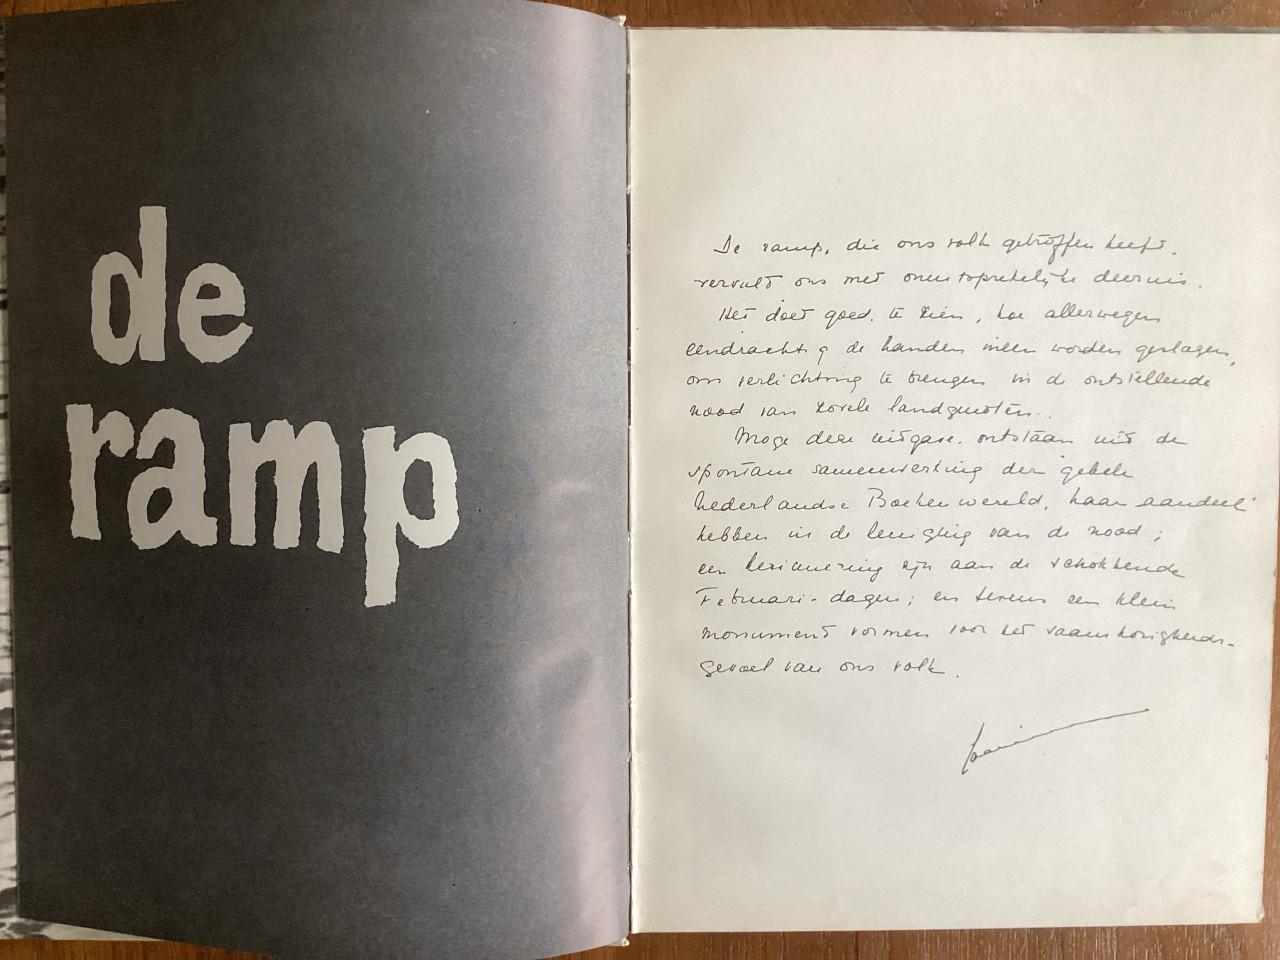 de
ramp
De ramp, die ons volk getroffen heeft,
vervult ons met onuitsprekelijke deernis.
Het doet goed, te zien, hoe allerwegen
eendrachtig de handen ineen worden geslagen,
om verlichting te brengen in de ontstellende
nood van zovele landgenoten.
Moge deze uitgave, ontstaan uit de
spontane samenwerking der gehele
Nederlandse Boekenwereld, haar aandeel
hebben in de leniging van de nood;
een herinnering zijn aan de schokkende
Februari-dagen; en tevens een klein
monument vormen voor het saamhorigheids-
gevoel van ons volk.
Juliana